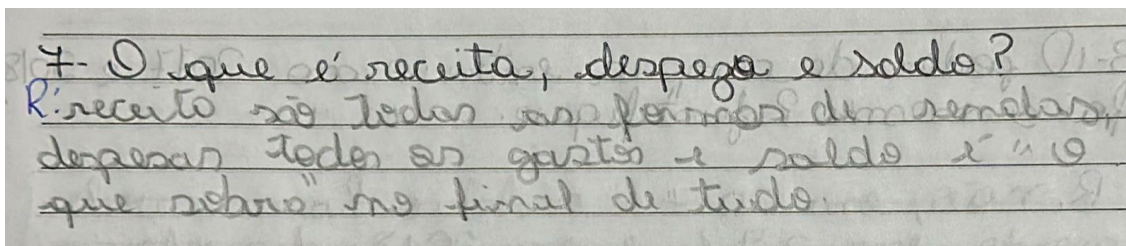 7- O que é receita, despeza e saldo?
R: receita são todas as formas de remdas,
despesas todos os gastos e saldo é "o
que sobra" no final de tudo.